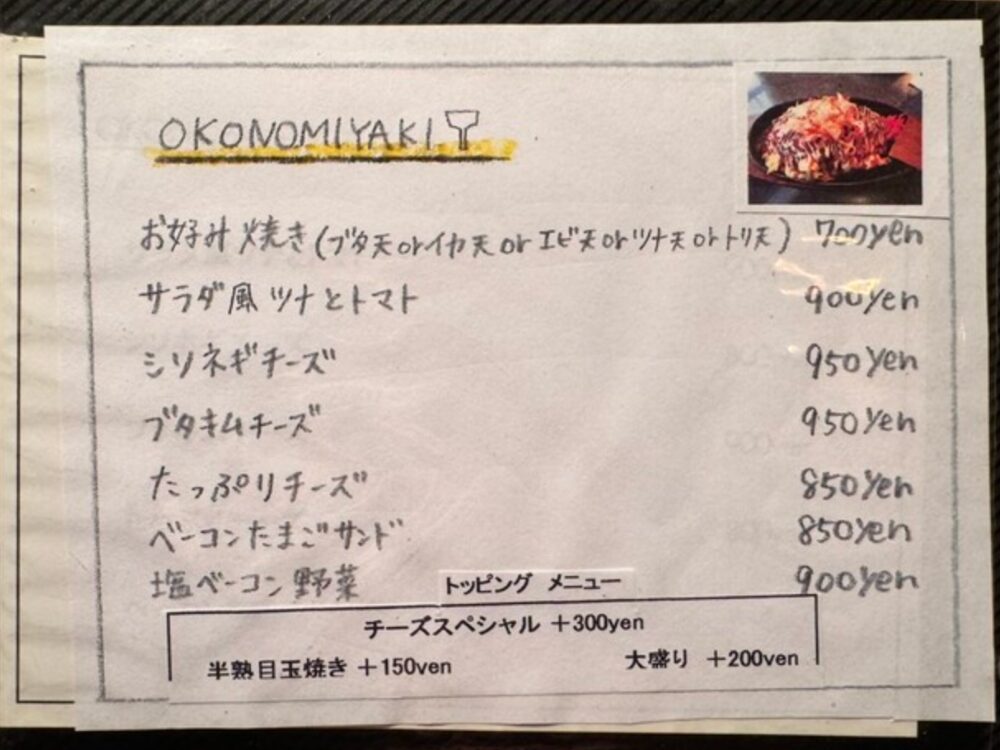 OKONOMIYAKI
お好み焼き(ブタ天orイカ天orエビ天orツナ天orトリ天) 700yen
サラダ風ツナとトマト 900yen
シソネギチーズ 950yen
ブタキムチーズ 950yen
たっぷりチーズ 850yen
ベーコンたまごサンド 850yen
塩ベーコン野菜 900yen
トッピング メニュー
チーズスペシャル +300yen
半熟目玉焼き +150yen 大盛り +200yen